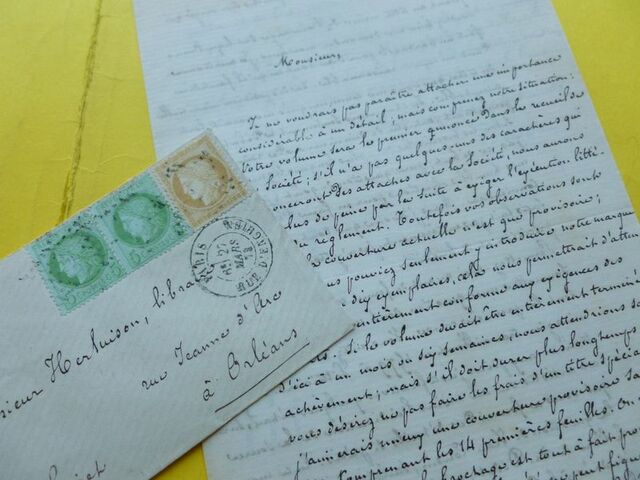 Monsieur,
Je ne voudrais pas paraître attacher une importance
considérable à un détail; mais comprenez notre situation:
Votre volume sera le premier annoncé dans le recueil de
Société; s'il n'a pas quelques-uns des caractères qui
des attaches avec la Société, nous aurons
plus de peine par la suite à exiger l'exécution litté-
règlement. Toutefois vos observations sont
couverture actuelle n'est que provisoire;
pouviez seulement y introduire notre marque
dix exemplaires, cela nous permettrait d'atten
entièrement conforme aux exigences des
si le volume devait être entièrement terminé
d'ici à un mois ou six semaines, nous attendrions son
achèvement; mais s'il doit durer plus longtemps
vous désirez ne pas faire les frais d'un titre spécial
j'aimerais mieux une couverture provisoire
comprenant les 14 premières feuilles. On
brochage est tout à fait pro
peut
PARIS
27
MARS
Monsieur Herluison, libra
rue Jeanne d'Arc
à Orléans